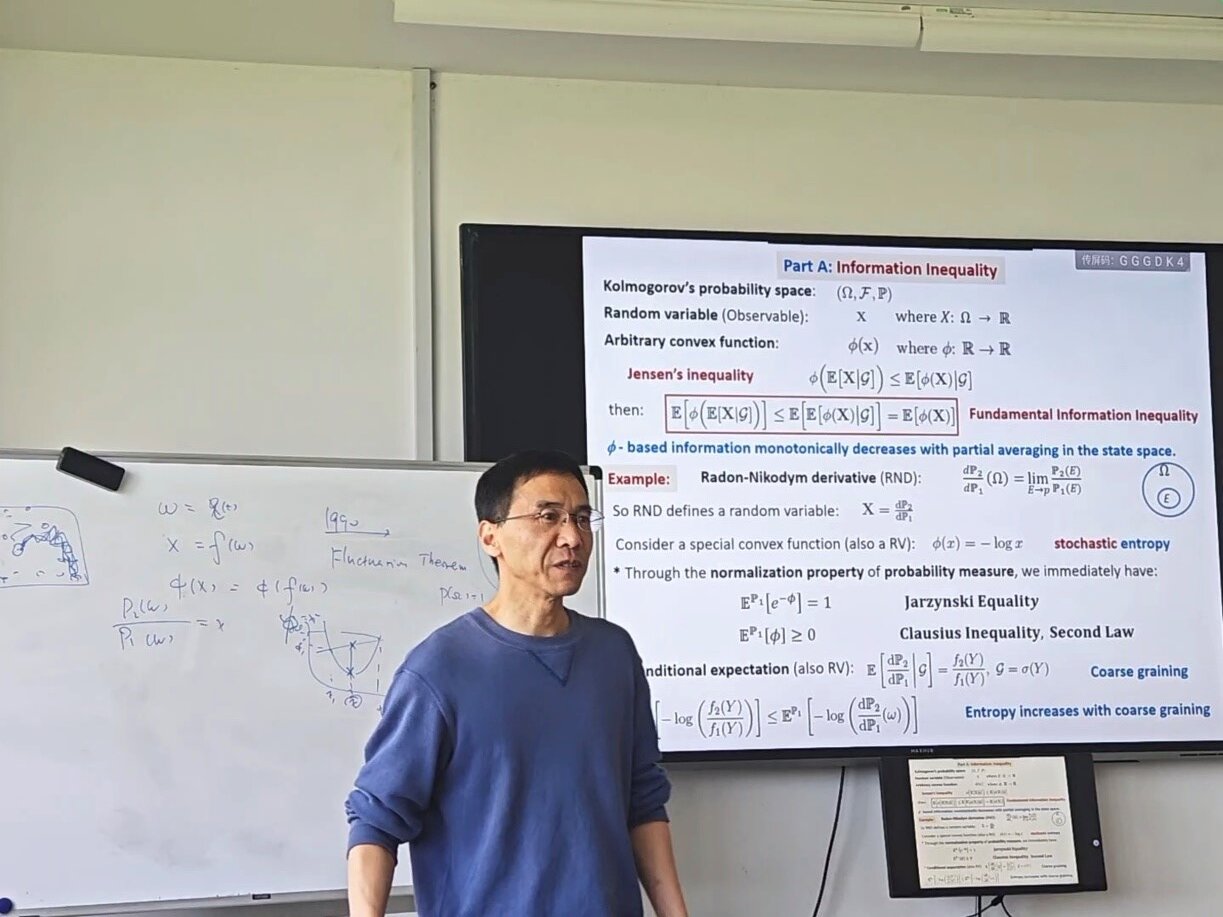 ω = X(t)
X = f(ω)
ϕ(X) = ϕ(f(ω))
P₂(ω)/P₁(ω) = x
1990
Fluctuation Theorem
P(Ω)=1
传屏码: GGGDK4
Part A: Information Inequality
Kolmogorov's probability space: (Ω, ℱ, ℙ)
Random variable (Observable): X where X: Ω → ℝ
Arbitrary convex function: ϕ(x) where ϕ: ℝ → ℝ
Jensen's inequality ϕ(𝔼[X|𝒢]) ≤ 𝔼[ϕ(X)|𝒢]
then: 𝔼[ϕ(𝔼[X|𝒢])] ≤ 𝔼[𝔼[ϕ(X)|𝒢]] = 𝔼[ϕ(X)] Fundamental Information Inequality
ϕ - based information monotonically decreases with partial averaging in the state space.
Example: Radon-Nikodym derivative (RND): dℙ₂/dℙ₁ (Ω) = lim E→p ℙ₂(E)/ℙ₁(E)
Ω
E
So RND defines a random variable: X = dℙ₂/dℙ₁
Consider a special convex function (also a RV): ϕ(x) = −log x stochastic entropy
* Through the normalization property of probability measure, we immediately have:
𝔼^ℙ₁[e^−ϕ] = 1 Jarzynski Equality
𝔼^ℙ₁[ϕ] ≥ 0 Clausius Inequality, Second Law
nditional expectation (also RV): 𝔼[dℙ₂/dℙ₁|𝒢] = f₂(Y)/f₁(Y), 𝒢 = σ(Y) Coarse graining
[−log(f₂(Y)/f₁(Y))] ≤ 𝔼^ℙ₁[−log(dℙ₂/dℙ₁(ω))] Entropy increases with coarse graining
MAXHUB